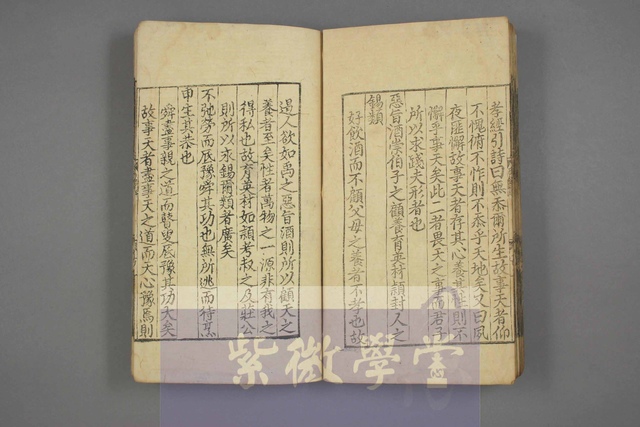 孝經引詩曰無忝爾所生故事天者仰
不愧俯不怍則不忝乎天地矣又曰夙
夜匪懈故事天者存其心養其性則不
懈乎事天矣此二者畏天之事而君子
所以求踐夫形者也
惡旨酒崇伯子之顧養育英材穎封人之
錫類
好飲酒而不顧父母之養者不孝也故
遏人欲如禹之惡旨酒則所以顧天之
養者至矣性者萬物之一源非有我之
得私也故育英材如穎考叔之及莊公
則所以永錫爾類者廣矣
不弛勞而底豫舜其功也無所逃而待烹
申生其恭也
舜盡事親之道而瞽叟底豫其功大矣
故事天者盡事天之道而天心豫焉則
紫微學堂